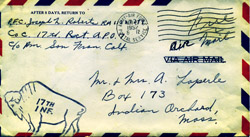 AFTER 5 DAYS, RETURN TO
Pfc. Joseph L. Roberts RA
Co C. 17th Regt. A.P.O.
c/o P.M. San Fran Calif
Free
Air Mail
VIA AIR MAIL
Mr. & Mrs. A. Laperle
Box 173
Indian Orchard,
Mass.
17TH INF.